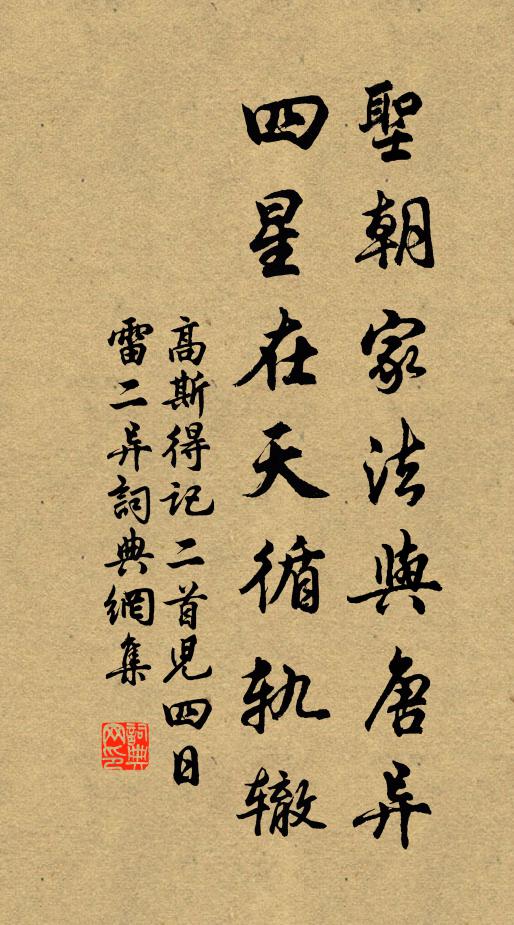 聖朝家法與唐异
四星在天循轨辙
高斯得记二首児四日
雷二异詞典網集
詞典网印